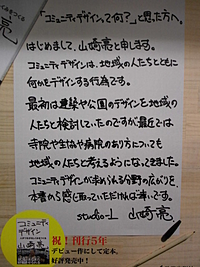 「コミュニティデザインって何？」と思った方へ。
はじめまして、山崎亮と申します。
コミュニティデザインは、地域の人たちとともに
何かをデザインする行為です。
最初は建築や公園のデザインを地域の
人たちと検討していたのですが、最近では
寺院や生協や病院のあり方についても
地域の人たちと考えるようになってきました。
コミュニティデザインが求められる分野の広がりを、
本書から感じ取っていただければ幸いです。
studio-L 山崎亮
コミュニティ
デザイン
山崎亮
祝！刊行5年
デビュー作にして定本、
好評発売中！